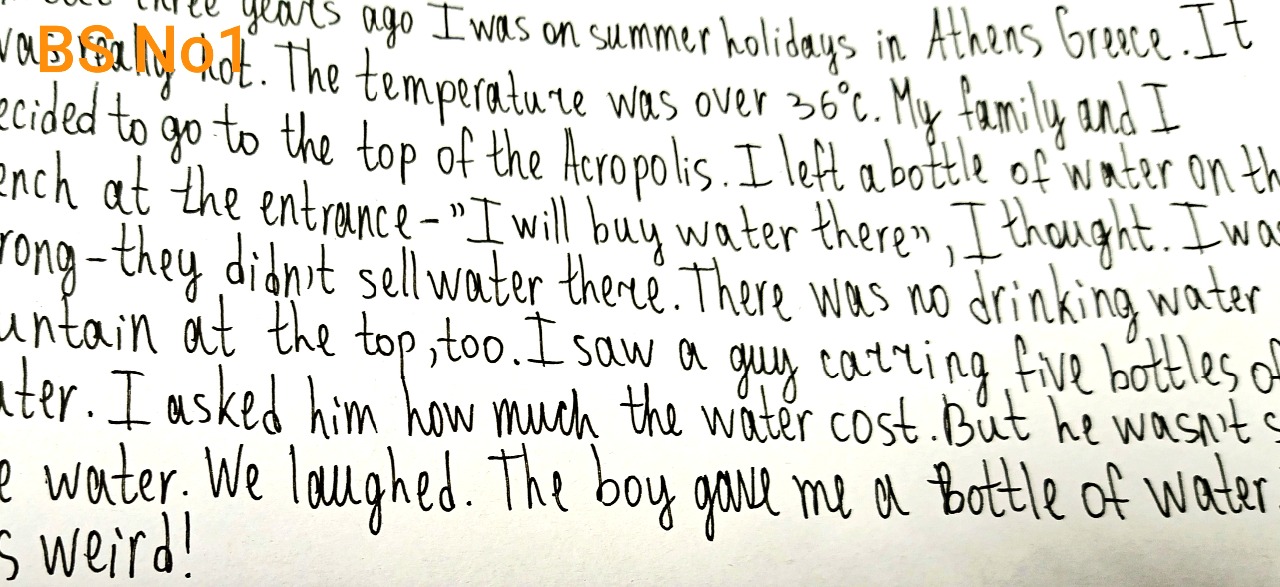 three years ago I was on summer holidays in Athens Greece. It
BS No1
really hot. The temperature was over 36°c. My family and I
ecided to go to the top of the Acropolis. I left a bottle of water on th
ench at the entrance - "I will buy water there", I thought. I was
rong - they didn't sell water there. There was no drinking water
untain at the top, too. I saw a guy carring five bottles of
ater. I asked him how much the water cost. But he wasn't s
e water. We laughed. The boy gave me a Bottle of water.
s weird!